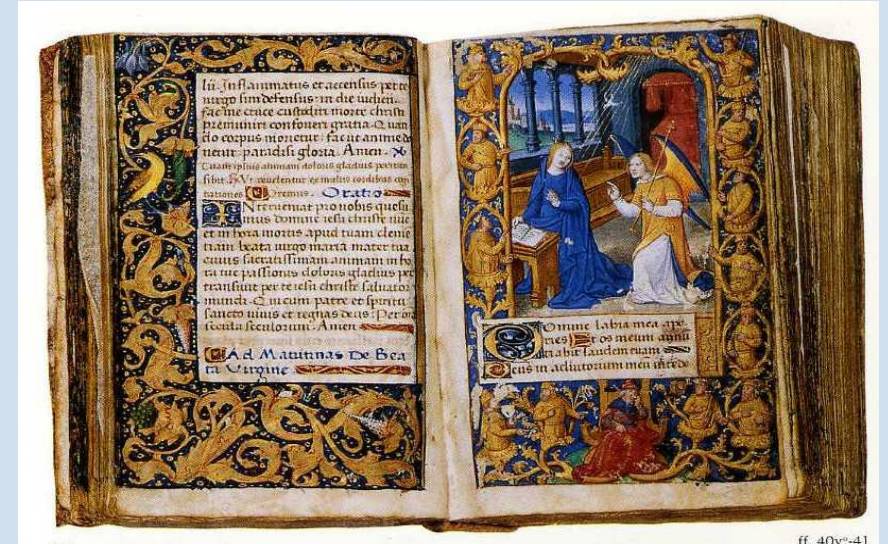 lii. Inflammatus et accensus per te
virgo sim defensus: in die iudicii.
fac me cruce custodiri morte christi
premuniri confoueri gratia. Quan
do corpus morietur: fac ut anime do
netur paradisi gloria. Amen.
Tuam ipsius animam doloris gladius pertran
sibit. Ut reuelentur ex multis cordibus cogi
tationes Oremus. Oratio
INterueniat pro nobis quesu
mus domine iesu christe nunc
et in hora mortis apud tuam cleme
tiam beata virgo maria mater tua
cuius sacratissimam animam in ho
ra tue passionis doloris gladius per
transiuit per te iesu christe saluator
mundi. Qui cum patre et spiritu
sancto viuis et regnas deus: Per om
secula seculorum. Amen
Ad Matutinas De Bea
ta Virgine
DOmine labia mea ape
ries Et os meum annu
tiabit laudem tuam
Deus in adiutorium meu intede
ff. 40vº-41